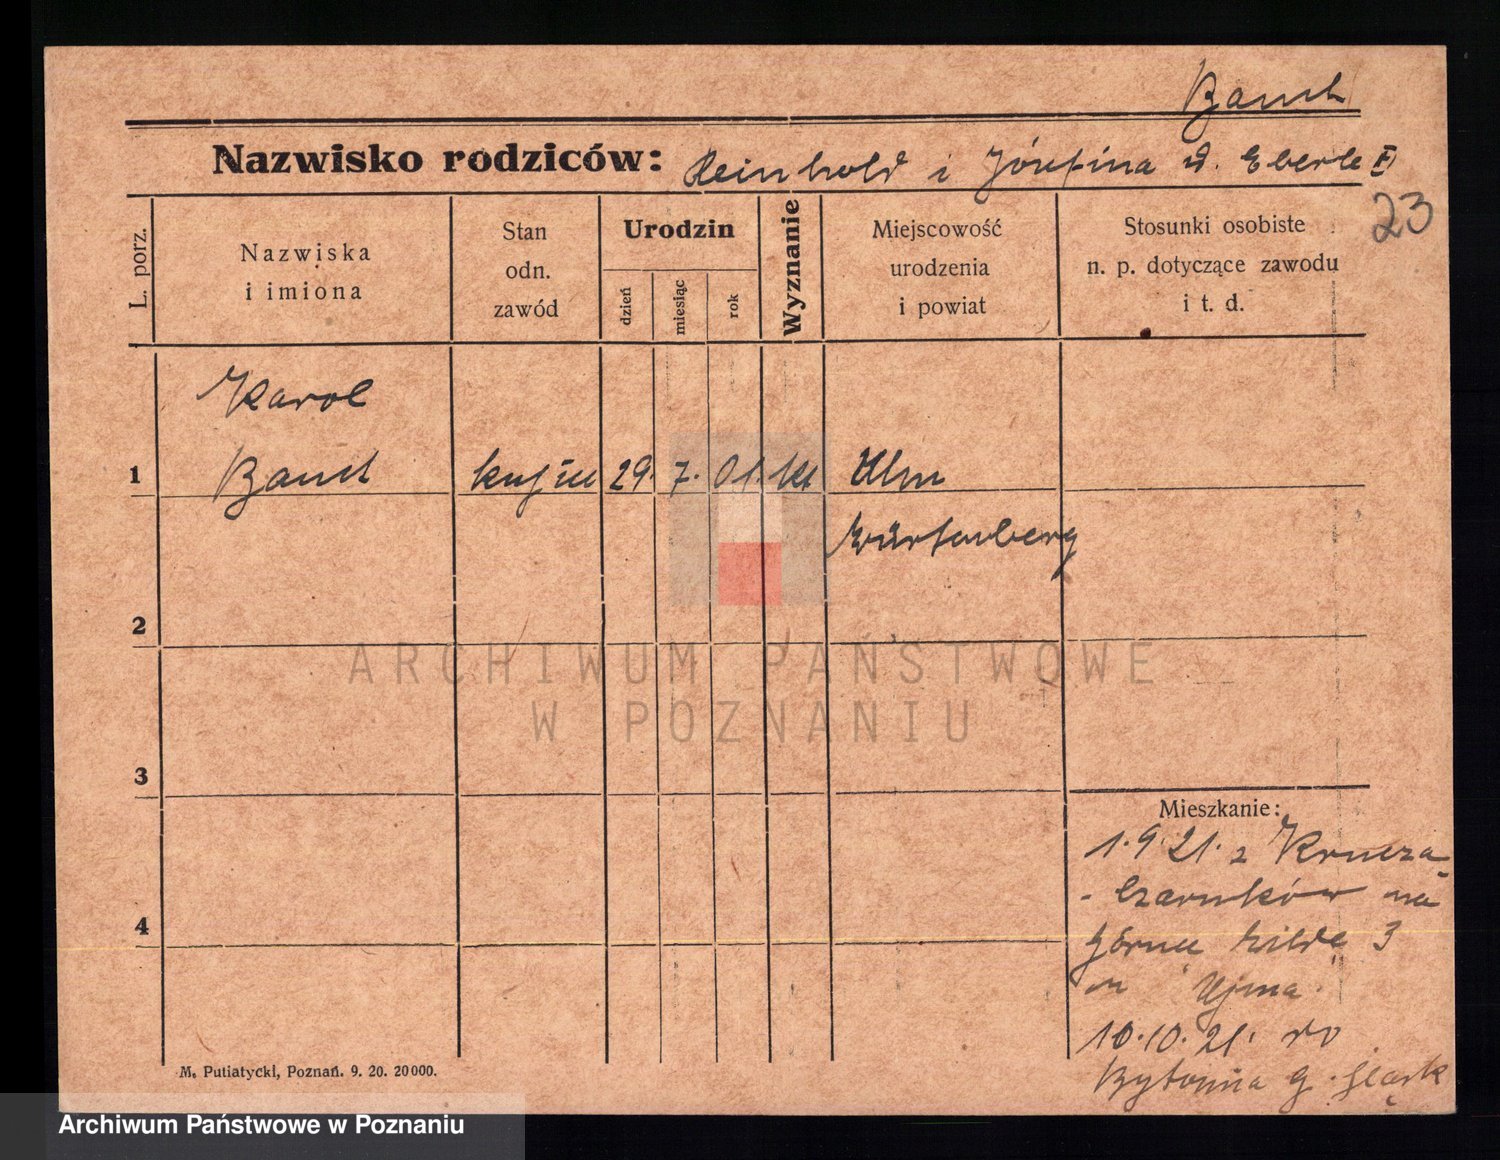 Bauch
Nazwisko rodziców: Reinhold i Józefina d. Eberle
23
L. porz.
Nazwiska
i imiona
Stan
odn.
zawód
Urodzin
dzień
miesiąc
rok
Wyznanie
Miejscowość
urodzenia
i powiat
Stosunki osobiste
n. p. dotyczące zawodu
i t. d.
Karol
1 Bauch 29. 7. 01. kt Ulm
Würtenberg
2
3
4
Mieszkanie:
1.9.21. z
Czarnków na
Górna Wilda 3
Ujma
10.10.21. do
Bytomia g. Śląsk
M. Putiatycki, Poznań. 9. 20. 20000.
ARCHIWUM PAŃSTWOWE
W POZNANIU
Archiwum Państwowe w Poznaniu